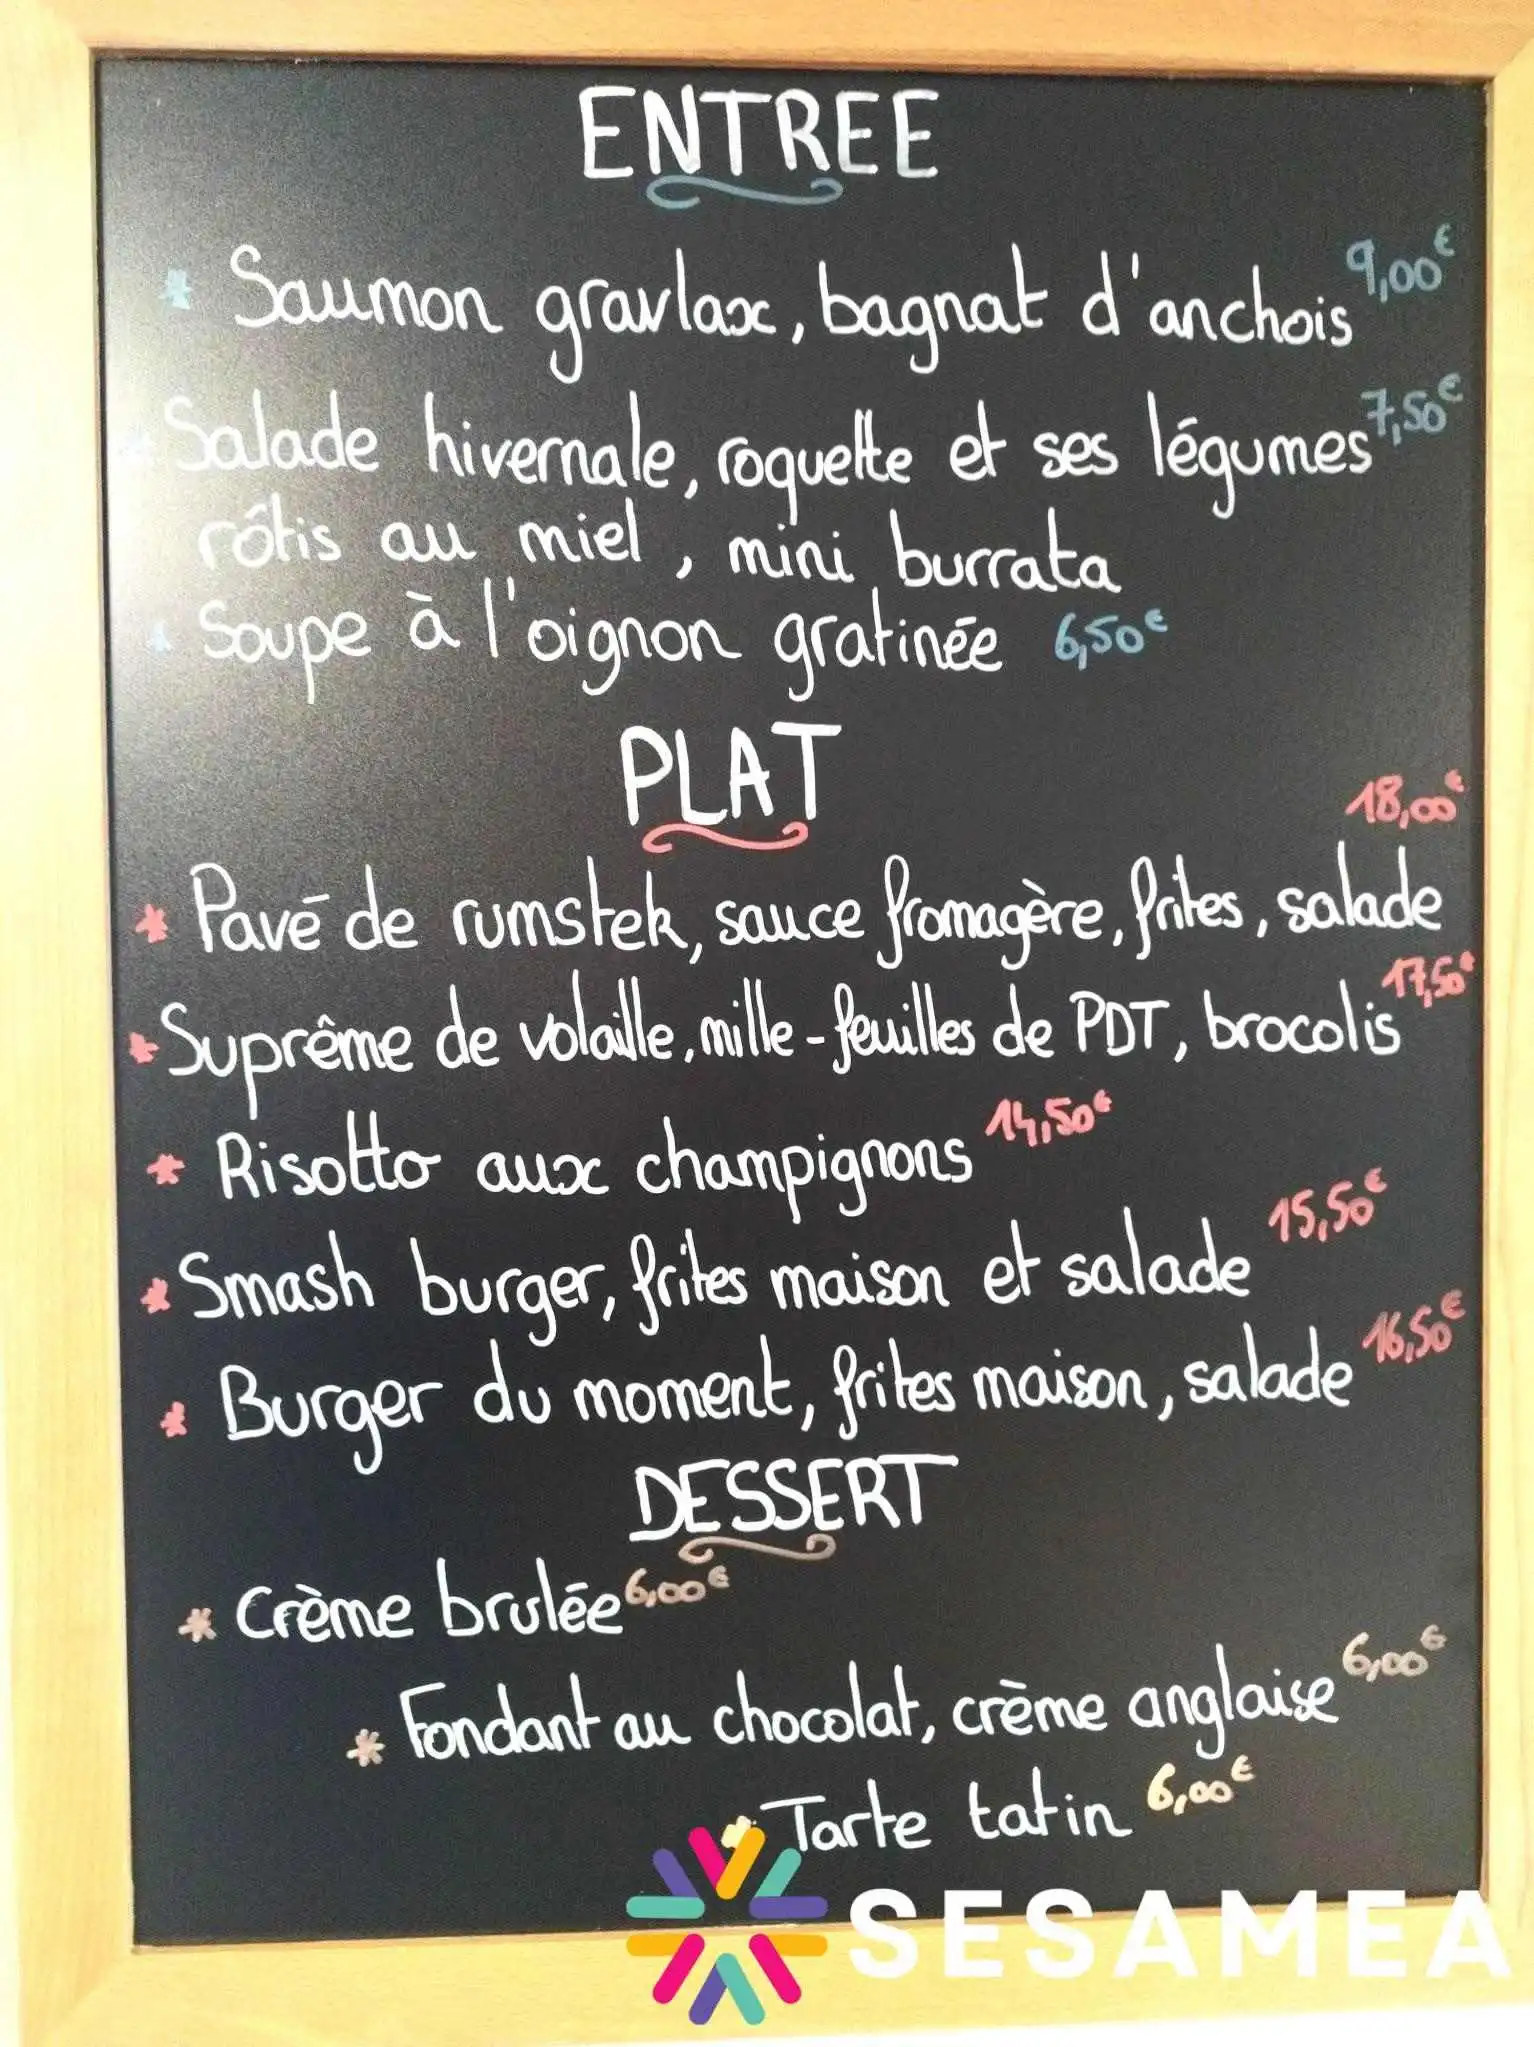 ENTREE
* Saumon gravlax, bagnat d'anchois 9,00€
* Salade hivernale, roquette et ses légumes 7,50€
rôtis au miel, mini burrata
* Soupe à l'oignon gratinée 6,50€
PLAT
18,00€
* Pavé de rumstek, sauce fromagère, frites, salade
* Suprême de volaille, mille-feuilles de PDT, brocolis 17,50€
* Risotto aux champignons 14,50€
* Smash burger, frites maison et salade 15,50€
* Burger du moment, frites maison, salade 16,50€
DESSERT
* Crème brulée 6,00€
* Fondant au chocolat, crème anglaise 6,00€
* Tarte tatin 6,00€
SESAMEA